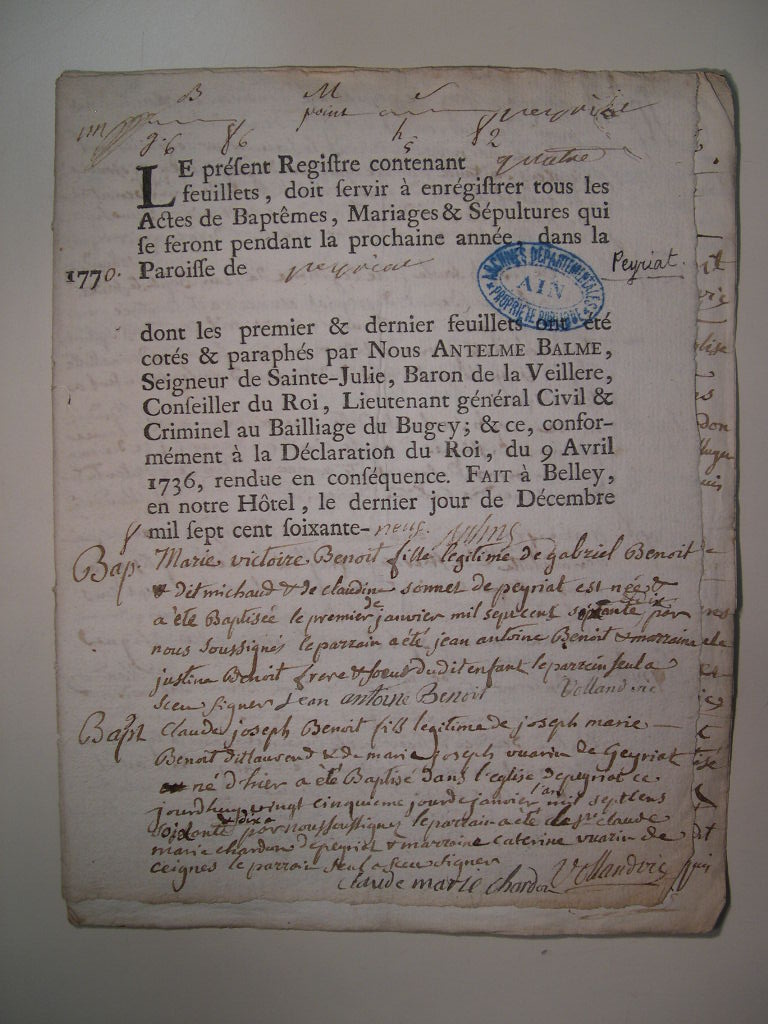 B M
point peyriat
g. 6 86 h 5 82
LE préſent Regiſtre contenant quatre
feuillets, doit ſervir à enrégiſtrer tous les
Actes de Baptêmes, Mariages & Sépultures qui
ſe feront pendant la prochaine année, dans la
1770. Paroiſſe de peyriat Peyriat.
ARCHIVES DEPARTEMENTALES
AIN
PROPRIÉTÉ PUBLIQUE
dont les premier & dernier feuillets ont été
cotés & paraphés par Nous ANTELME BALME,
Seigneur de Sainte-Julie, Baron de la Veillere,
Conſeiller du Roi, Lieutenant général Civil &
Criminel au Bailliage du Bugey; & ce, confor-
mément à la Déclaration du Roi, du 9 Avril
1736, rendue en conſéquence. FAIT à Belley,
en notre Hôtel, le dernier jour de Décembre
mil ſept cent ſoixante-neuf.
Bap. Marie victoire Benoit fille legitime de gabriel Benoit
dit michaud & de claudine sonnet de peyriat est née &
a été Baptisée le premier de janvier mil sept cent soixante dix par
nous soussignés le parrain a été jean antoine Benoit & marraine
justine Benoit frere & soeur dudit enfant le parrain seul a
sceu signer Jean antoine Benoit Vollandvic
Bapt. Claude joseph Benoit fils legitime de joseph marie
Benoit dit & de marie joseph vuarin de Geyriat
né d'hier a été Baptisé dans l'eglise de peyriat ce
jourdhuy vingt cinquieme jour de janvier l'an mil sept cens
soixante & dix par nous soussignez le parrain a été claude
marie chardon de peyriat & marraine caterine vuarin de
ceignes le parrain seul a sceu signer
claude marie chardon Vollandvic